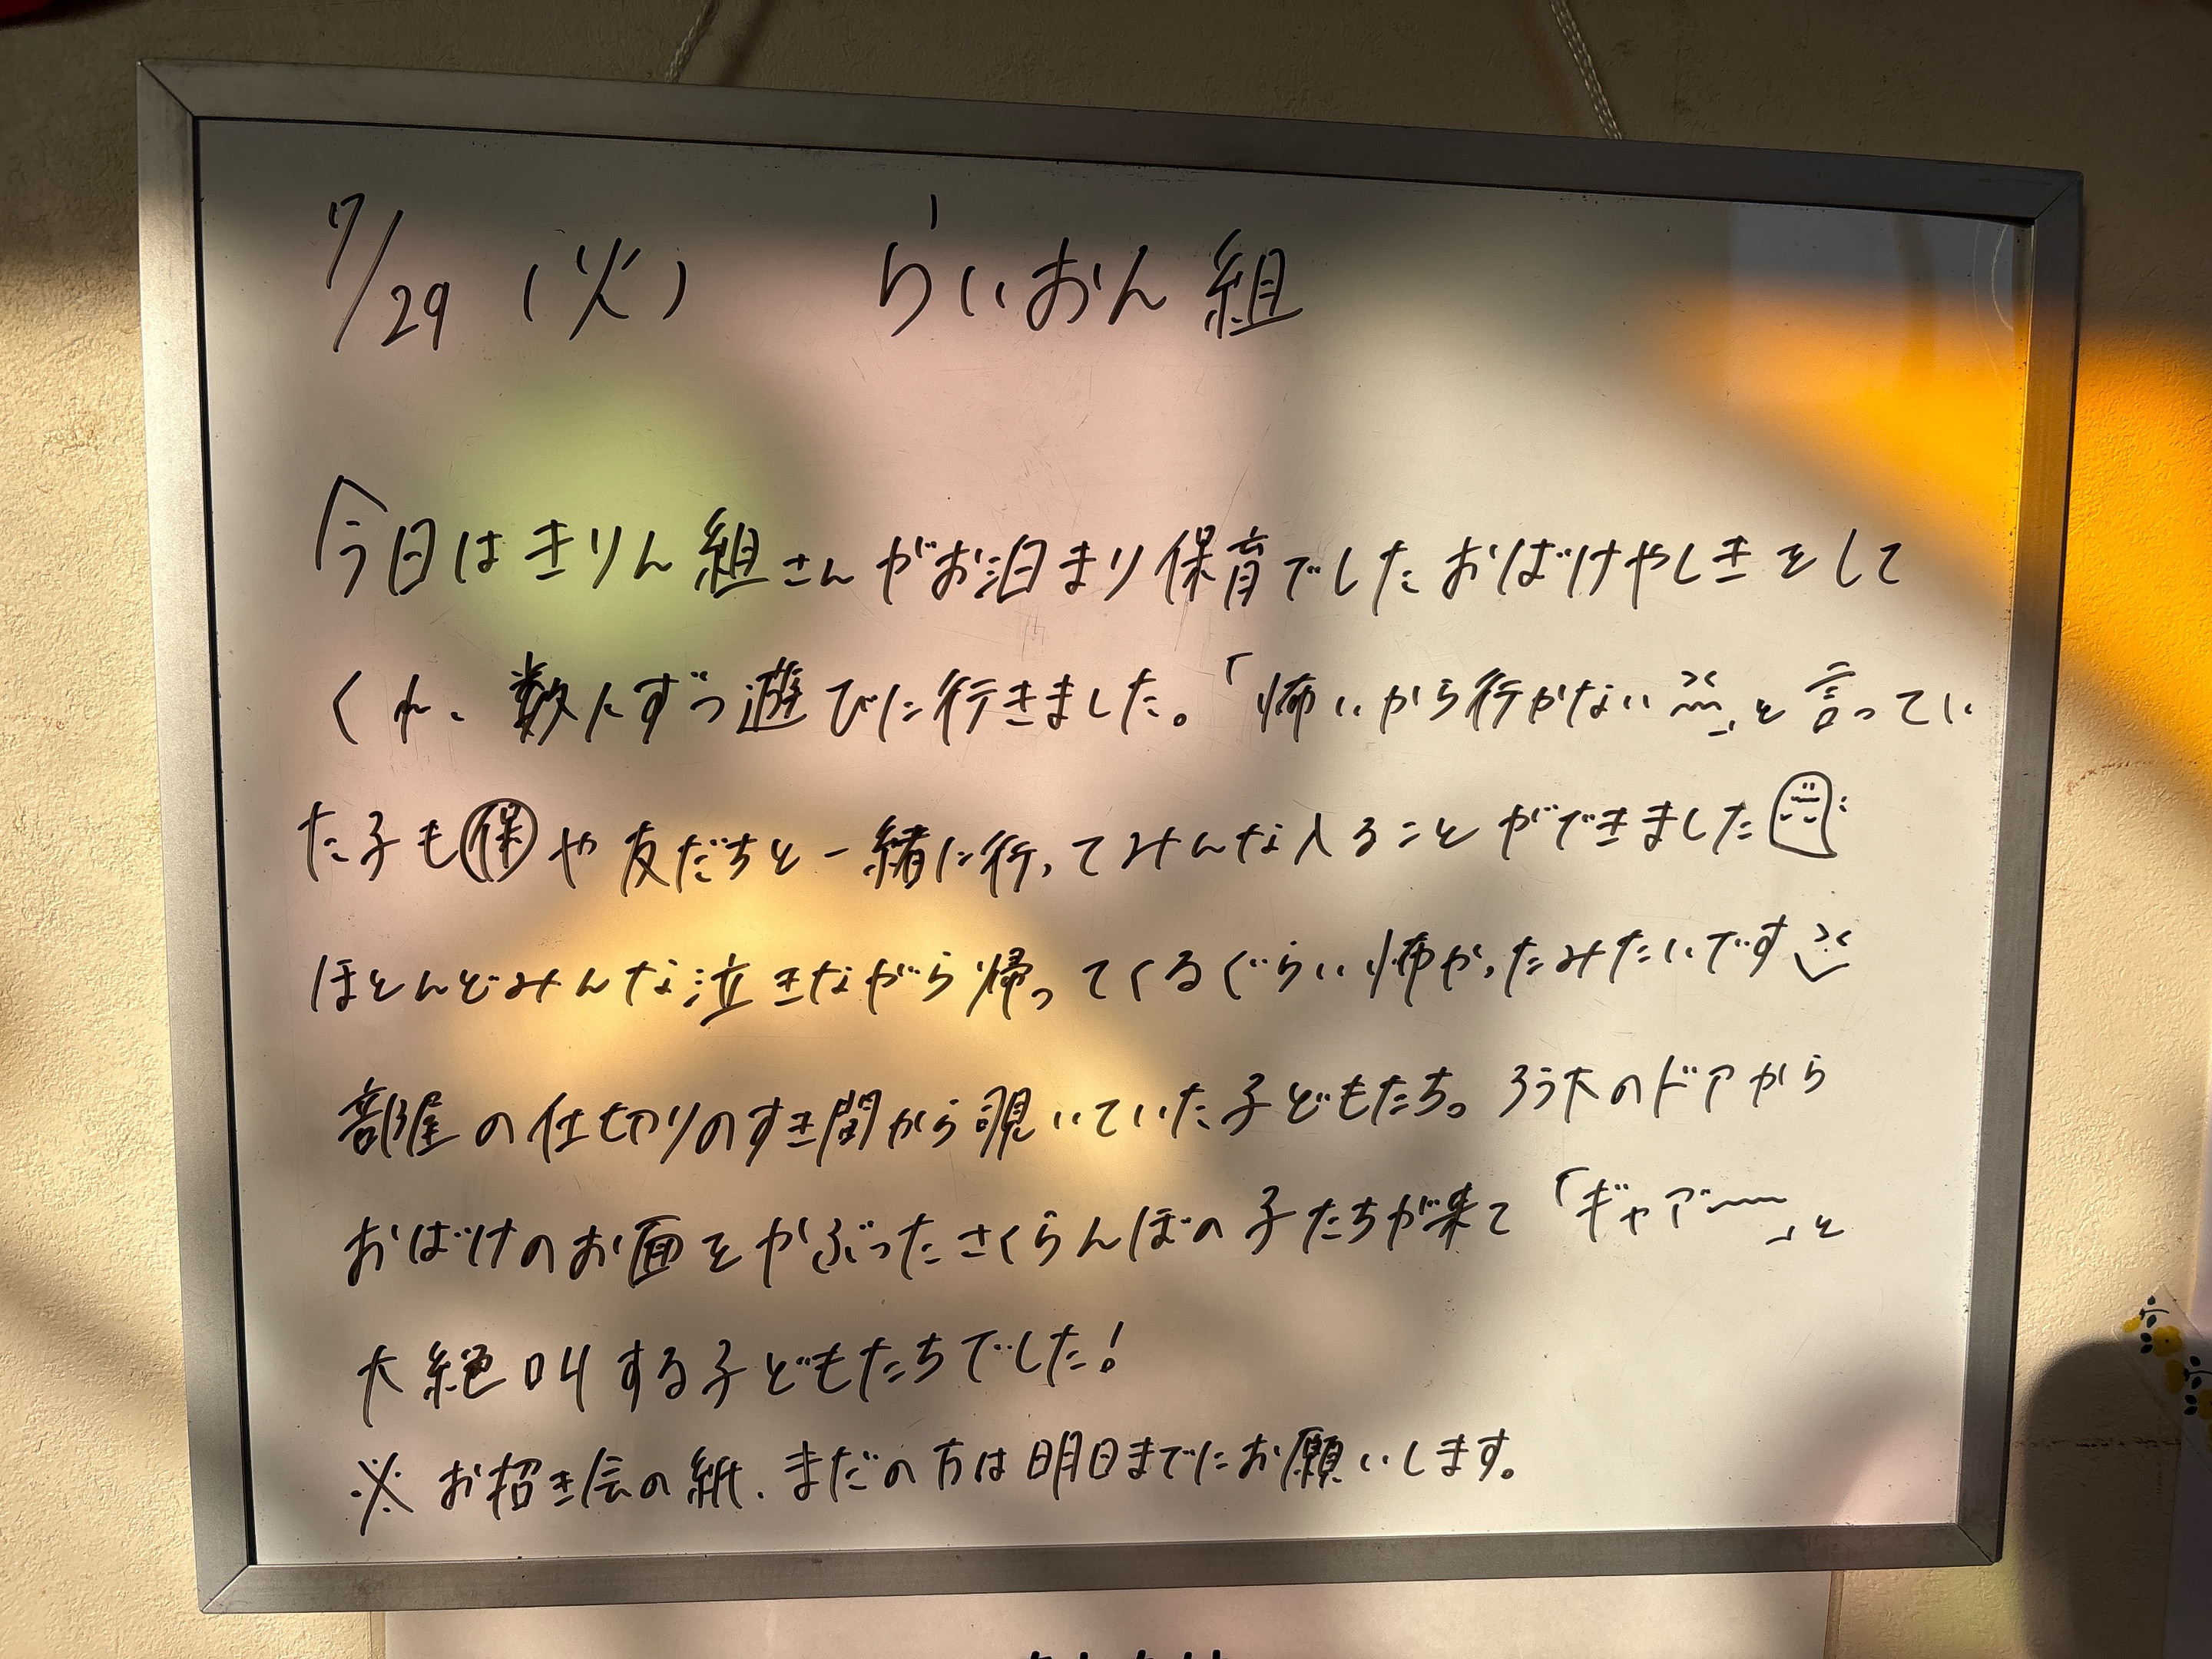 7/29 (火) らいおん組
今日はきりん組さんがお泊まり保育でしたおばけやしきをして
くれ、数人ずつ遊びに行きました。「怖いから行かない」と言ってい
た子も㊝や友だちと一緒に行ってみんな入ることができました
ほとんどみんな泣きながら帰ってくるぐらい怖かったみたいです
部屋の仕切りのすき間から覗いていた子どもたち。ろう下のドアから
おばけのお面をかぶったさくらんぼの子たちが来て「ギャアー」と
大絶叫する子どもたちでした!
※お招き会の紙、まだの方は明日までにお願いします。